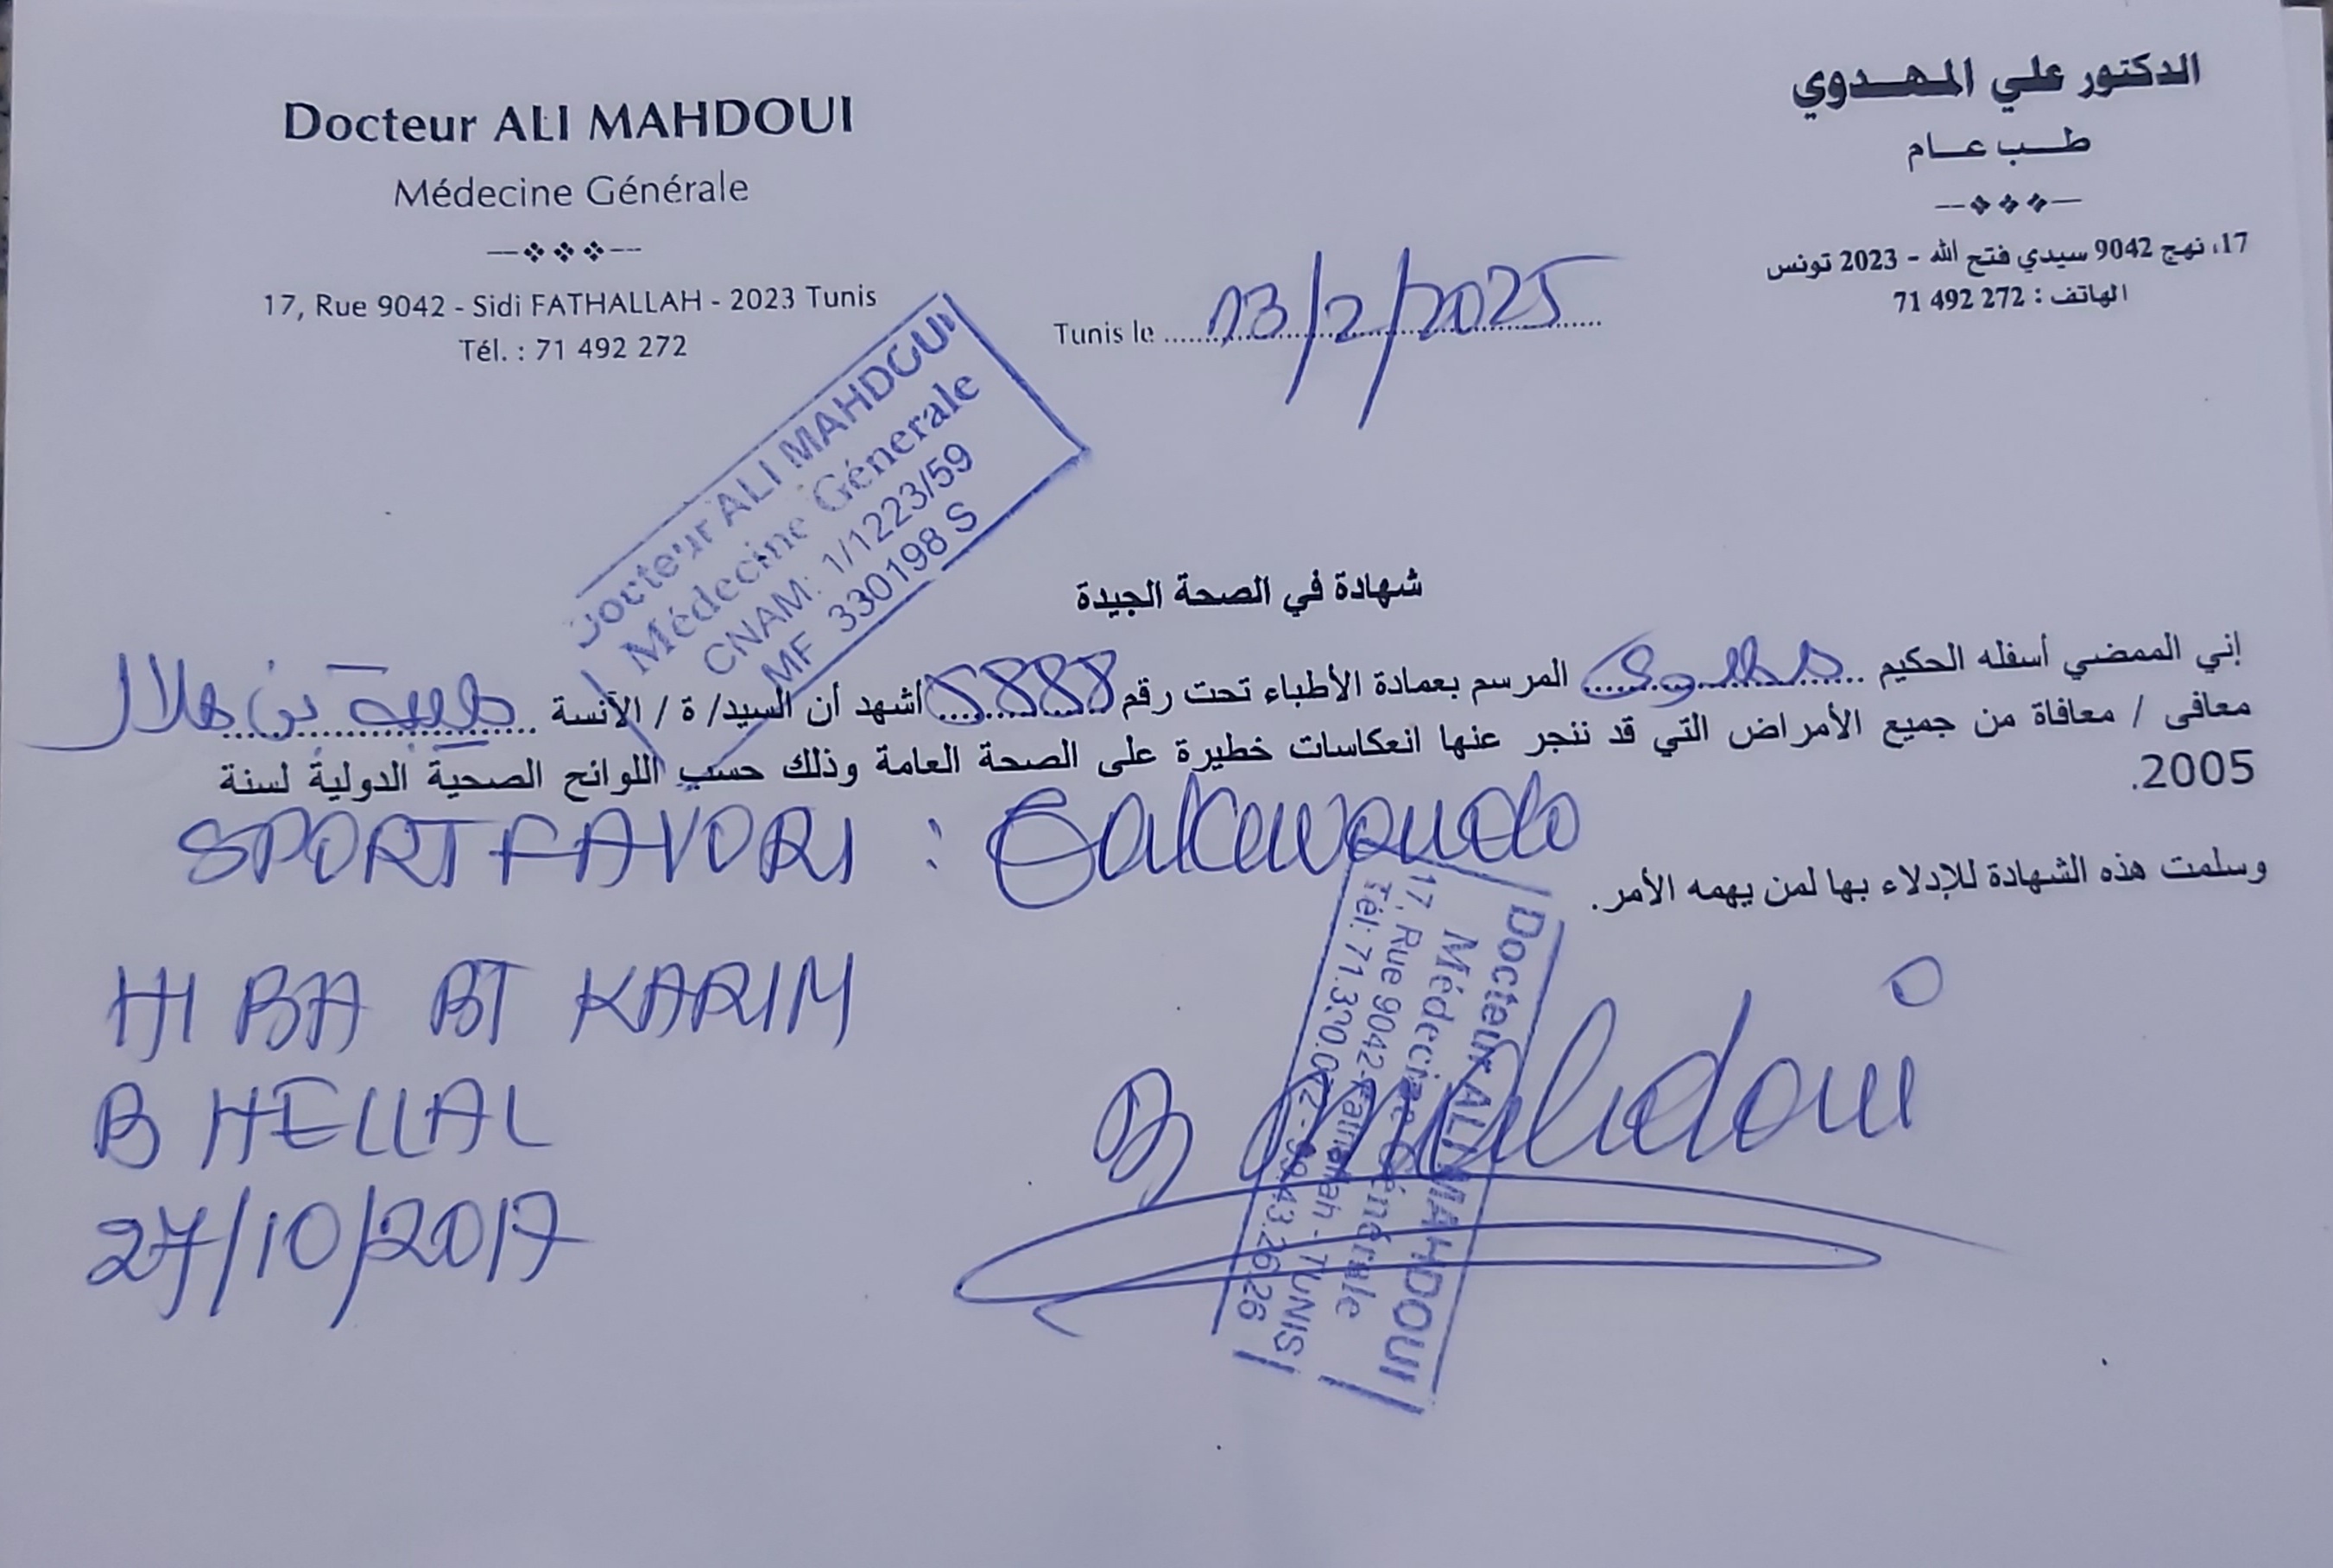 Docteur ALI MAHDOUI
Médecine Générale
17, Rue 9042 - Sidi FATHALLAH - 2023 Tunis
Tél. : 71 492 272
الدكتور علي المهدوي
طب عام
17، نهج 9042 سيدي فتح الله - 2023 تونس
الهاتف : 272 492 71
Tunis le 13/2/2025
Docteur ALI MAHDOUI
Médecine Génerale
CNAM: 1/1223/59
MF 330198 S
شهادة في الصحة الجيدة
إني الممضي أسفله الحكيم المرسم بعمادة الأطباء تحت رقم 5888 أشهد أن السيد/ ة / الآنسة هيبة بن هلال
معافى / معافاة من جميع الأمراض التي قد ننجر عنها انعكاسات خطيرة على الصحة العامة وذلك حسب اللوائح الصحية الدولية لسنة
2005.
SPORT FAVORI :
وسلمت هذه الشهادة للإدلاء بها لمن يهمه الأمر.
HIBA BT KARIM
B HELLAL
27/10/2017
Dr Mahdoui
Docteur ALI MAHDOUI
Médecine Générale
17, Rue 9042 - Fathallah - TUNIS